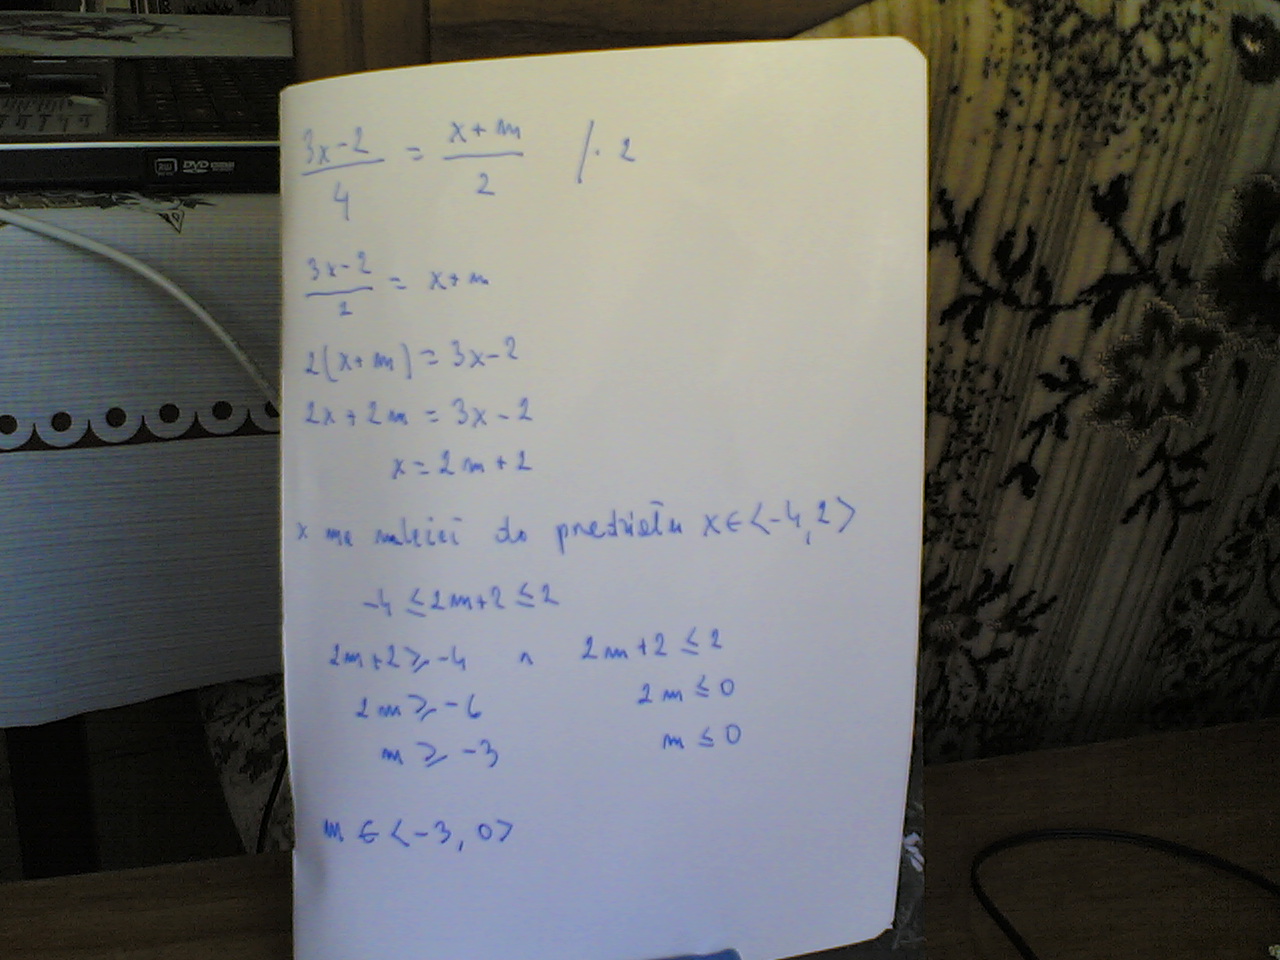 DVD
(3x-2)/4 = (x+m)/2 /·2
(3x-2)/2 = x+m
2(x+m) = 3x-2
2x+2m = 3x-2
x = 2m+2
x ma należeć do przedziału x∈<-4,2>
-4 ≤ 2m+2 ≤ 2
2m+2 ≥ -4 ∧ 2m+2 ≤ 2
2m ≥ -6 2m ≤ 0
m ≥ -3 m ≤ 0
m ∈ <-3, 0>